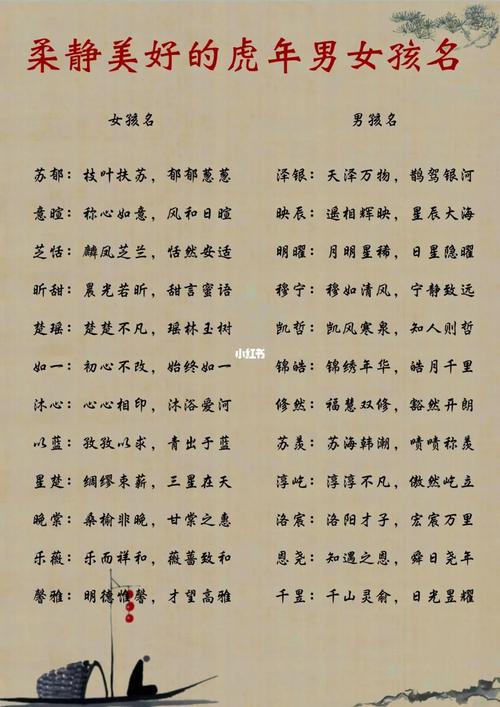 柔静美好的虎年男女孩名
女孩名
苏郁：枝叶扶苏，郁郁葱葱
意暄：称心如意，风和日暄
芝恬：麟凤芝兰，恬然安适
昕甜：晨光若昕，甜言蜜语
楚瑶：楚楚不凡，瑶林玉树
如一：初心不改，始终如一
沐心：心心相印，沐浴爱河
以蓝：孜孜以求，青出于蓝
星楚：绸缪束薪，三星在天
晚棠：桑榆非晚，甘棠之惠
乐薇：乐而祥和，薇蔷致和
馨雅：明德惟馨，才望高雅
男孩名
泽银：天泽万物，鹊驾银河
映辰：遥相辉映，星辰大海
明曜：月明星稀，日星隐曜
穆宁：穆如清风，宁静致远
凯哲：凯风寒泉，知人则哲
锦皓：锦绣年华，皓月千里
修然：福慧双修，豁然开朗
苏羡：苏海韩潮，啧啧称羡
淳屹：淳淳不凡，傲然屹立
洛宸：洛阳才子，宏宸万里
恩尧：知遇之恩，舜日尧年
千昱：千山灵俞，日光昱耀
小红书